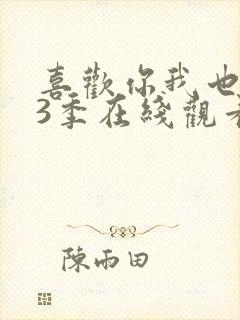 喜歡你我也
3季在綫觀
陳雨田